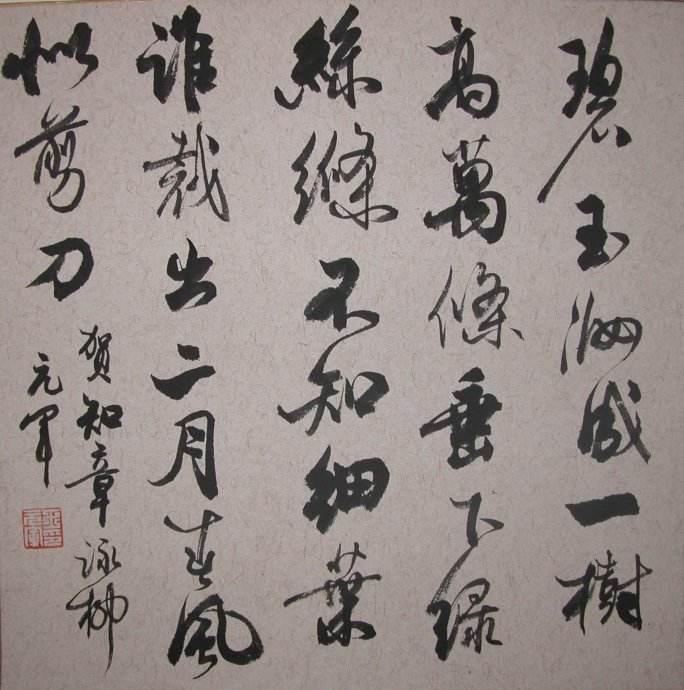 碧玉妝成一樹
高萬條垂下緑
絲縧不知細葉
誰裁出二月春風
似剪刀
贺知章詠柳
元军